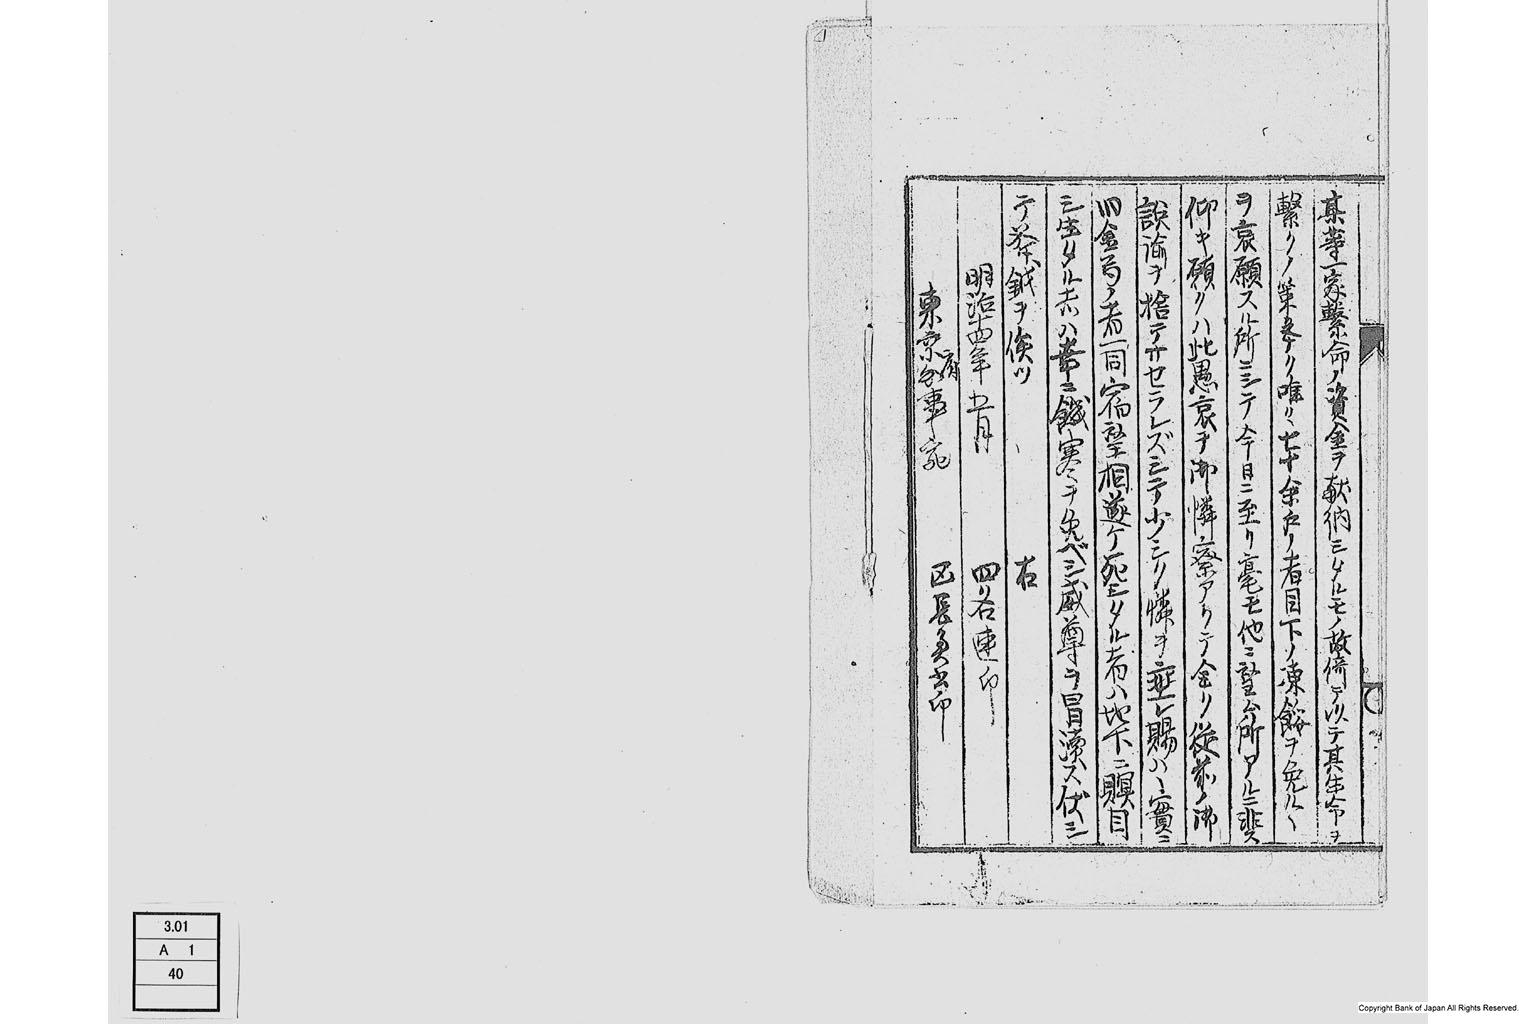 某等一家繋命ノ資金ヲ献納シタルモノ故償テ以テ其生命ヲ
繋クノ策ナリ唯リ七十余戸ノ者目下ノ凍餒ヲ免ルヽ
ヲ哀願スル所ニシテ今日ニ至リ毫モ他ニ望ム所アルニ非ス
仰キ願クハ此愚哀ヲ御憐察アリテ全ク従前ノ御
説諭ヲ捨テサセラレズシテ少シク憐ヲ垂レ賜ハヽ實ニ
旧金ノ者一同宿望相遂ケ死シタル者ハ地下ニ瞑目
シ生タル者ハ幸ニ饑寒ヲ免ベシ威尊ヲ冒瀆ス伏シ
テ斧鉞ヲ俟ツ
右
明治十四年五月 四名連印
東京府知事宛 区長奥書印
3.01
A 1
40
Copyright Bank of Japan All Rights Reserved.